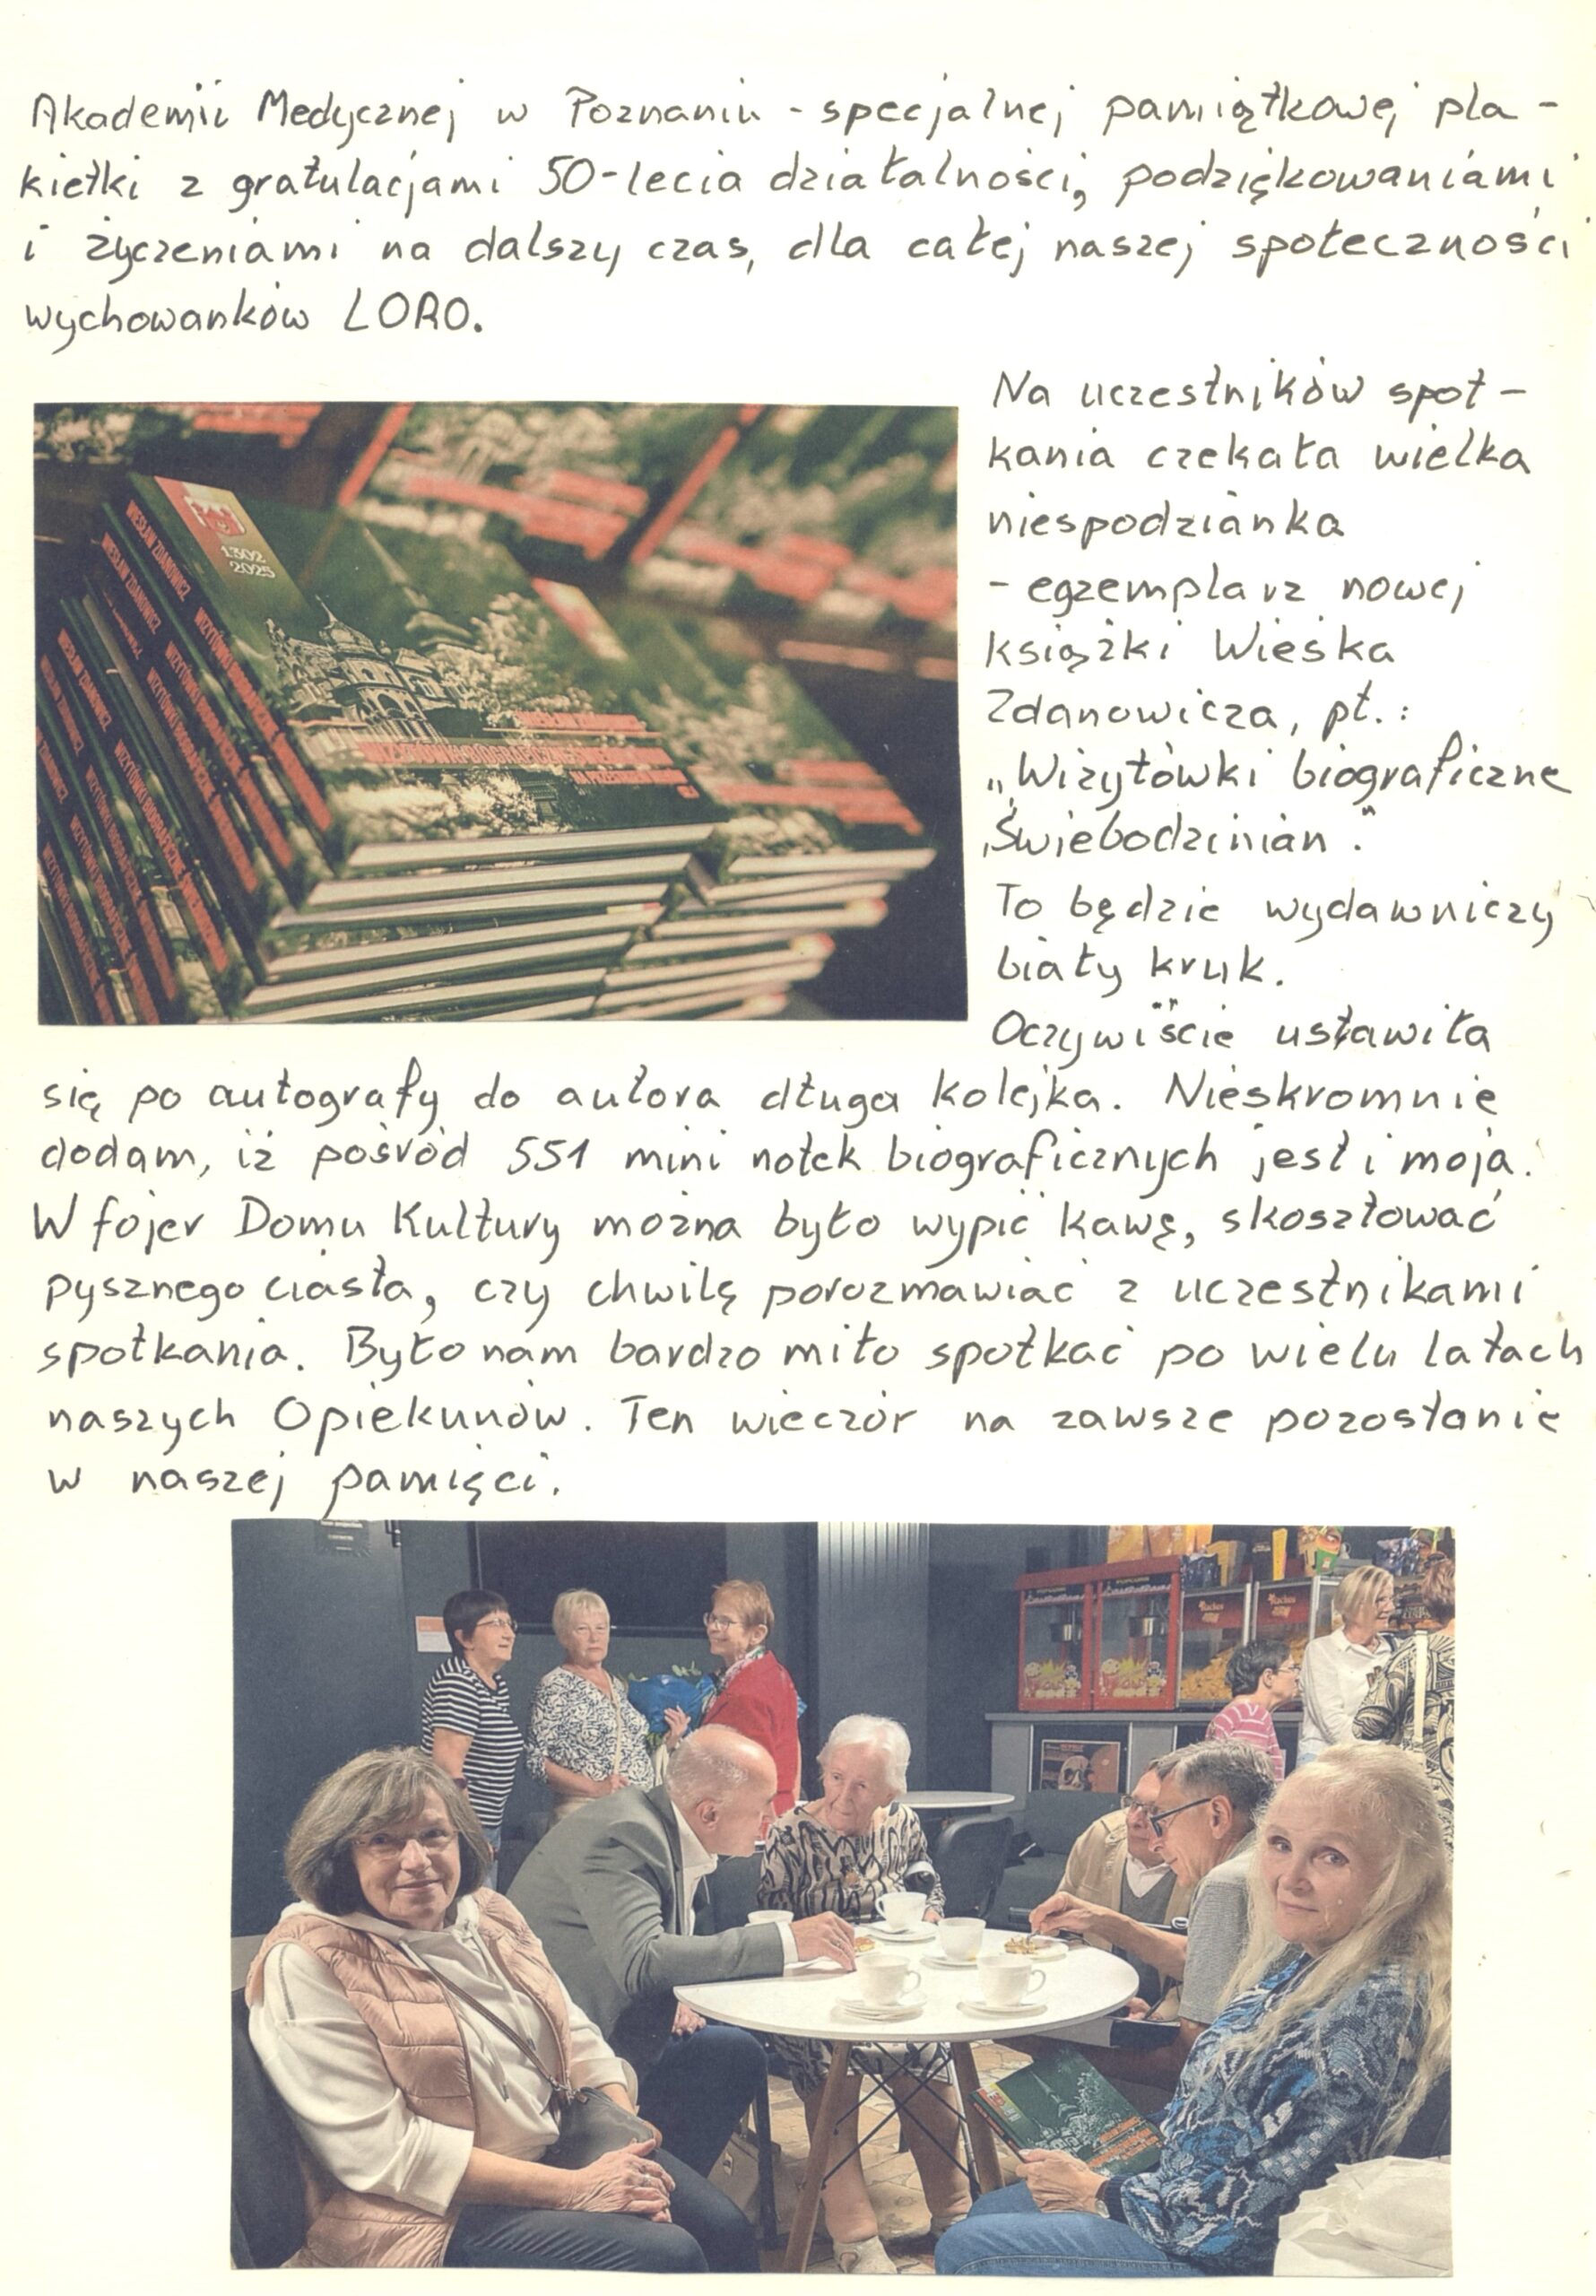 Akademii Medycznej w Poznaniu - specjalnej pamiątkowej pla-
kietki z gratulacjami 50-lecia działalności, podziękowaniami
i życzeniami na dalszy czas, dla całej naszej społeczności
wychowanków LORO.
Na uczestników spot-
kania czekała wielka
niespodzianka
- egzemplarz nowej
książki Wieśka
Zdanowicza, pt.:
„Wizytówki biograficzne
Świebodzinian".
To będzie wydawniczy
biały kruk.
Oczywiście ustawiła
się po autografy do autora długa kolejka. Nieskromnie
dodam, iż pośród 551 mini notek biograficznych jest i moja.
W fojer Domu Kultury można było wypić kawę, skosztować
pysznego ciasta, czy chwilę porozmawiać z uczestnikami
spotkania. Było nam bardzo miło spotkać po wielu latach
naszych Opiekunów. Ten wieczór na zawsze pozostanie
w naszej pamięci.
1302
2025
WIESŁAW ZDANOWICZ WIZYTÓWKI
WIESŁAW ZDANOWICZ WIZYTÓWKI